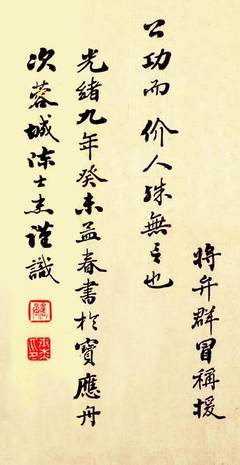 将弁群冒稱援
公功而价人殊無言也
光緒九年癸未孟春書於寶應舟
次蓉城陳士杰謹識